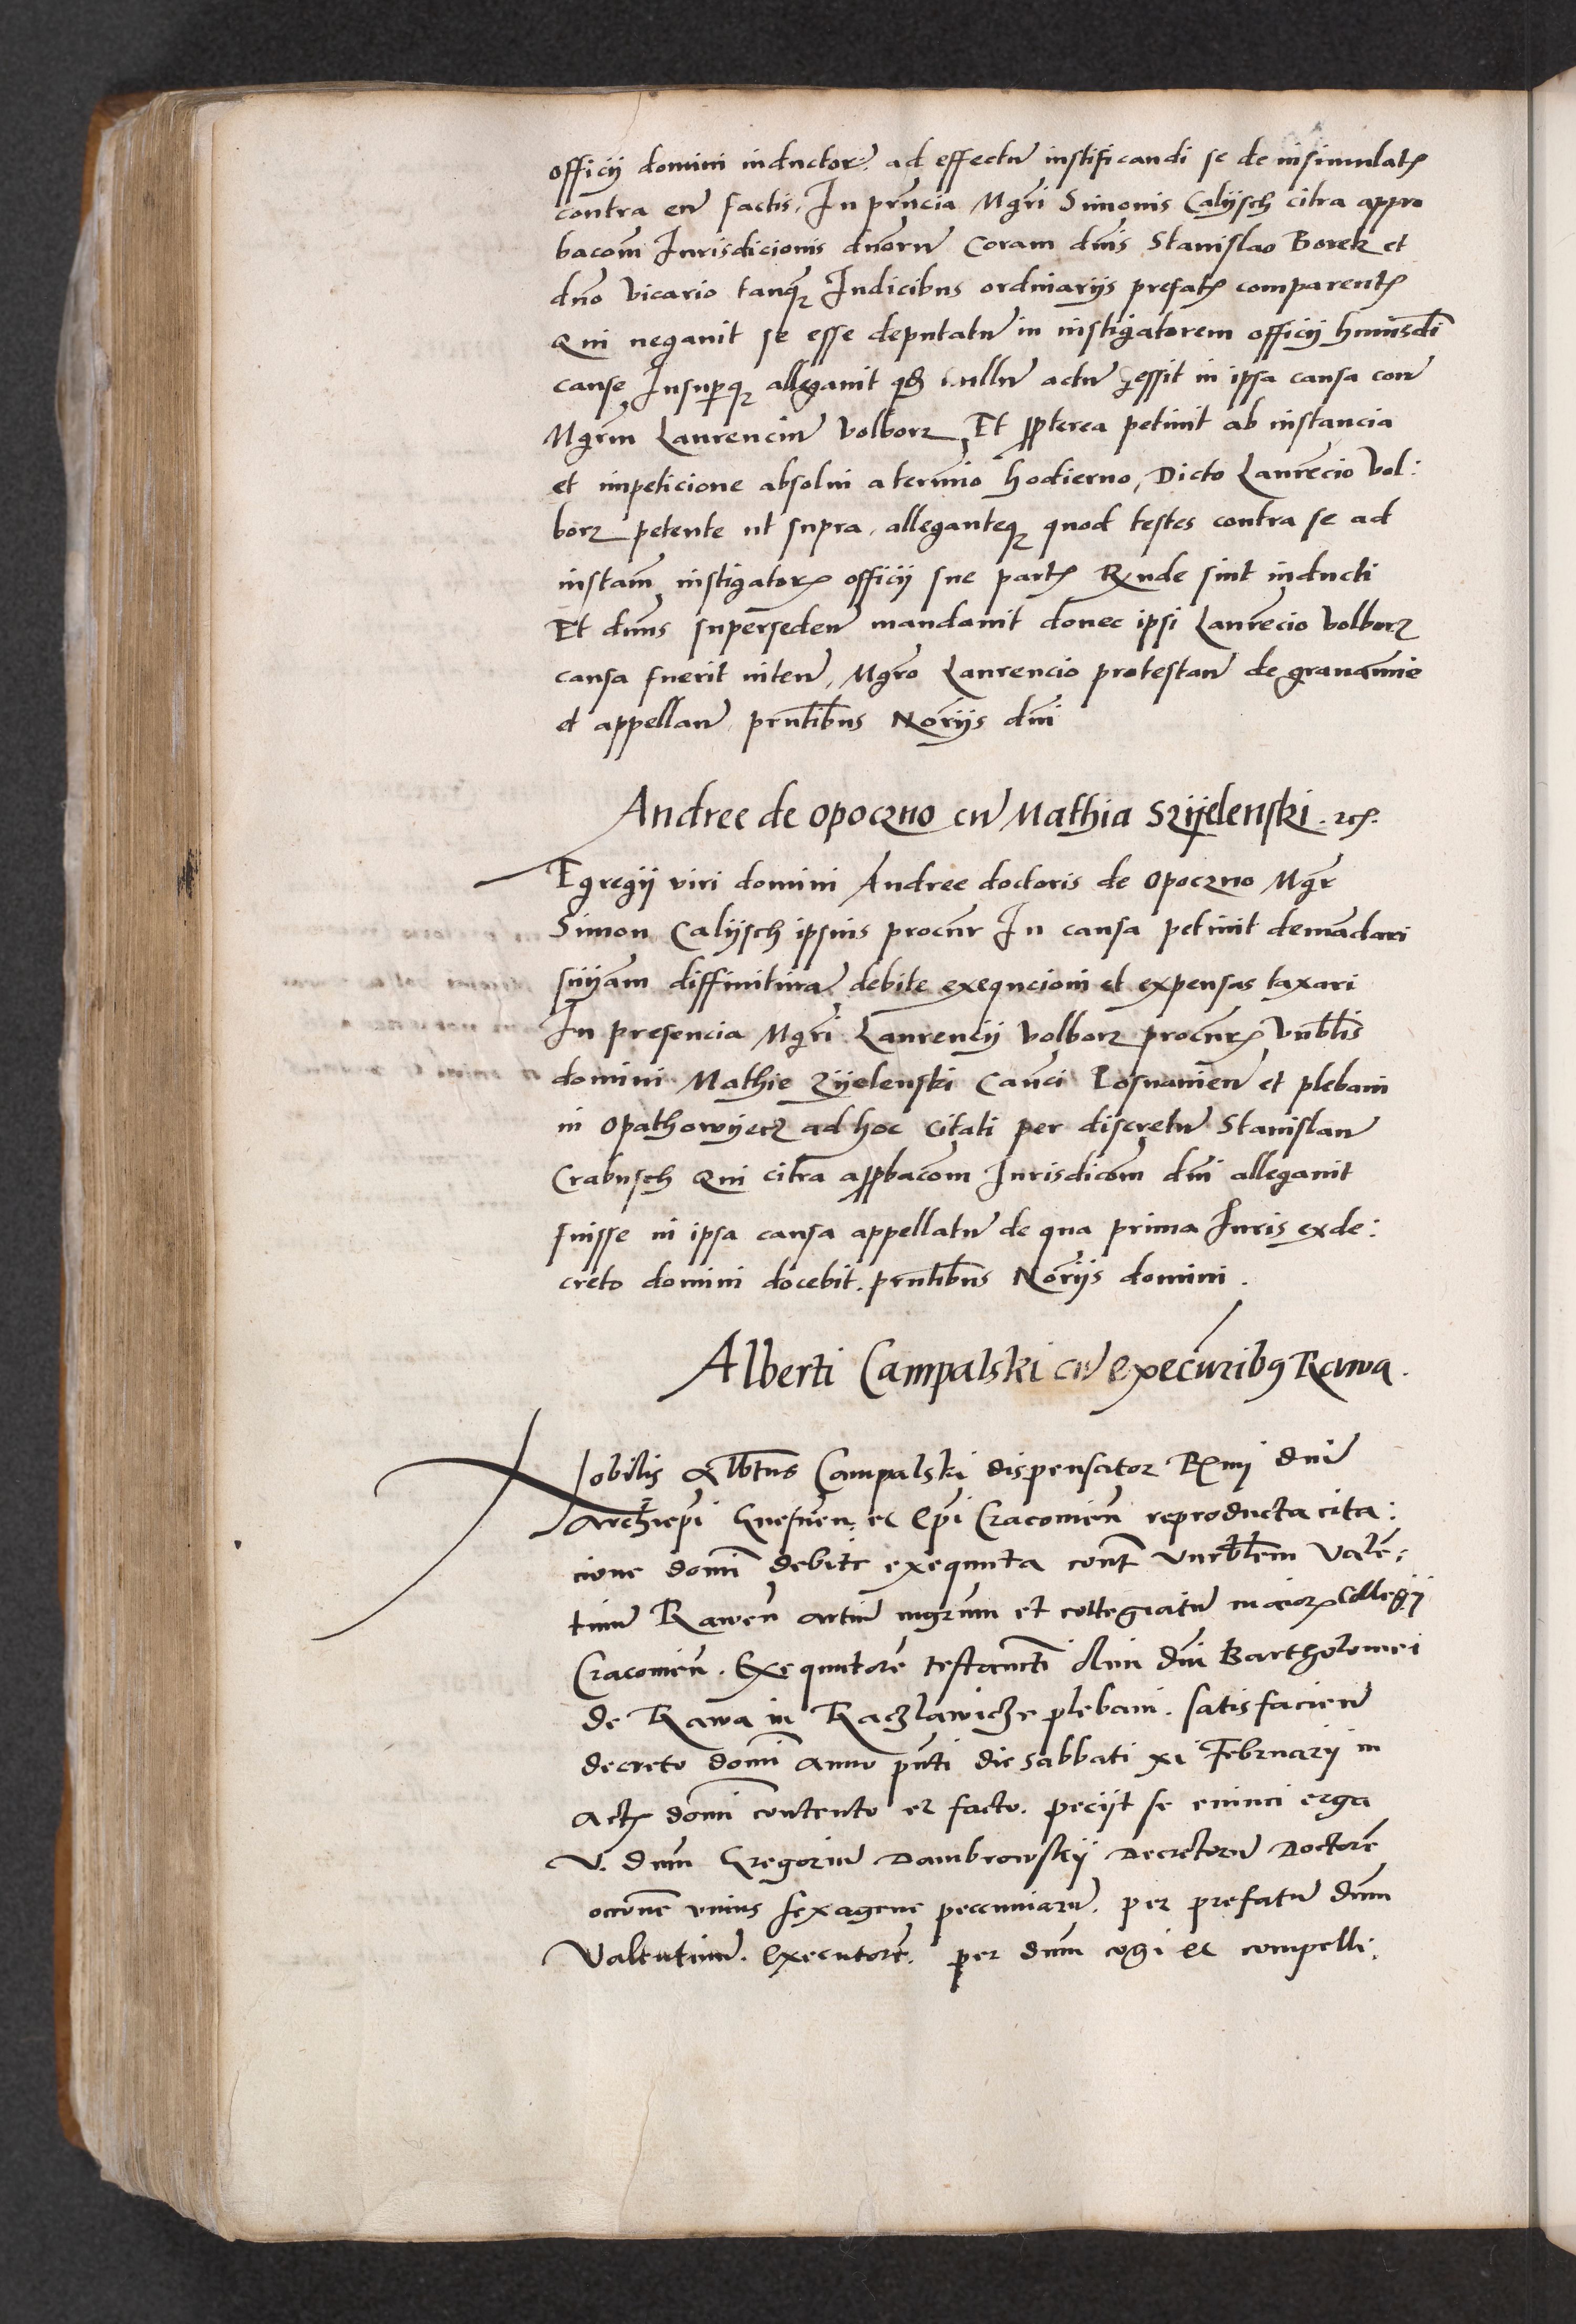 officij domini inductor̃. ad effectũ iustificandi se de insimulatꝭ
contra eũ factis, In prñcia Mgrĩ Simonis Calijsch citra appro
bacoñi Iurisdicionis dnõrũ Coram dñis Stanislao Borek et
dnõ Vicario tanqȝ Iudicibus ordinarijs prefatꝭ comparentꝭ
Qui negauit se esse deputatũ in instigatorem officij huiusdĩ
cause Insuperqȝ allegauit qđ nullũ actũ gessit in ipsa causa con
Mgrm̃ Laurenciũ Volborz Et ꝓpterea petiuit ab instancia
et impeticione absolui a termĩo hodierno, Dicto Laurẽcio Vol:
borz petente ut supra, alleganteqȝ quod testes contra se ad
instam̃ instigatorꝭ officij sue partꝭ Rude sint inducti
Et dnũs supersedeñ mandauit donec ipsi Laurẽcio Volborz
causa fuerit inteñ, Mgrõ Laurencio protestañ de grauamie
et appellañ, prñtibus Norijs dñi
Andree de opoczno cũ Mathia Szijelenski . rcꝭ.
Egregij viri domini Andree doctoris de Opoczno Mgr̃
Simon Calijsch ipsius procũr In causa petiuit demãdari
snijam diffinitiuã debite exequcioni et expensas taxari
In presencia Mgrĩ Laurencij Volborz procũrꝭ Vnblĩs
domini Mathie Zijelenski Cañci Posnanieñ et plebani
in Opathowijecz ad hoc citati per discretũ Stanislaũ
Crabusch Qui citra aꝓbacom̃ Iurisdicom̃ dñi allegauit
fuisse in ipsa causa appellatũ de qua prima Iuris exde:
creto domini docebit. prñtibus Norijs domini .
Alberti Campalski cũ execũribꝰ Rawa .
Nobilis Albtũs Campalski dispensator Rmi dñi
Archiepĩ Gnesneñ. et Epĩ Cracouieñ reproducta cita:
cione domĩ debite exequuta cont̃ Vnrblẽm Valẽ:
tinũ Raweñ artiũ mgrũm et collegiatũ maiorꝭ Collegij
Cracouieñ. Exequutorẽ testamẽti olim dñi Bartholomei
de Rawa in Raczlawicze plebani. satisfacieñ
decreto domĩ anno pñti die sabbati xi Februarij in
actꝭ domĩ contento et facto. peciit se euinci erga
V. dnũm Gregoriũ Dambrowskij Decretorũ Doctorẽ
occõne vnius sexagene peccuniarũ. per prefatũ dnũm
Valentinũ. Executorẽ. per dnũm cogi et compelli.